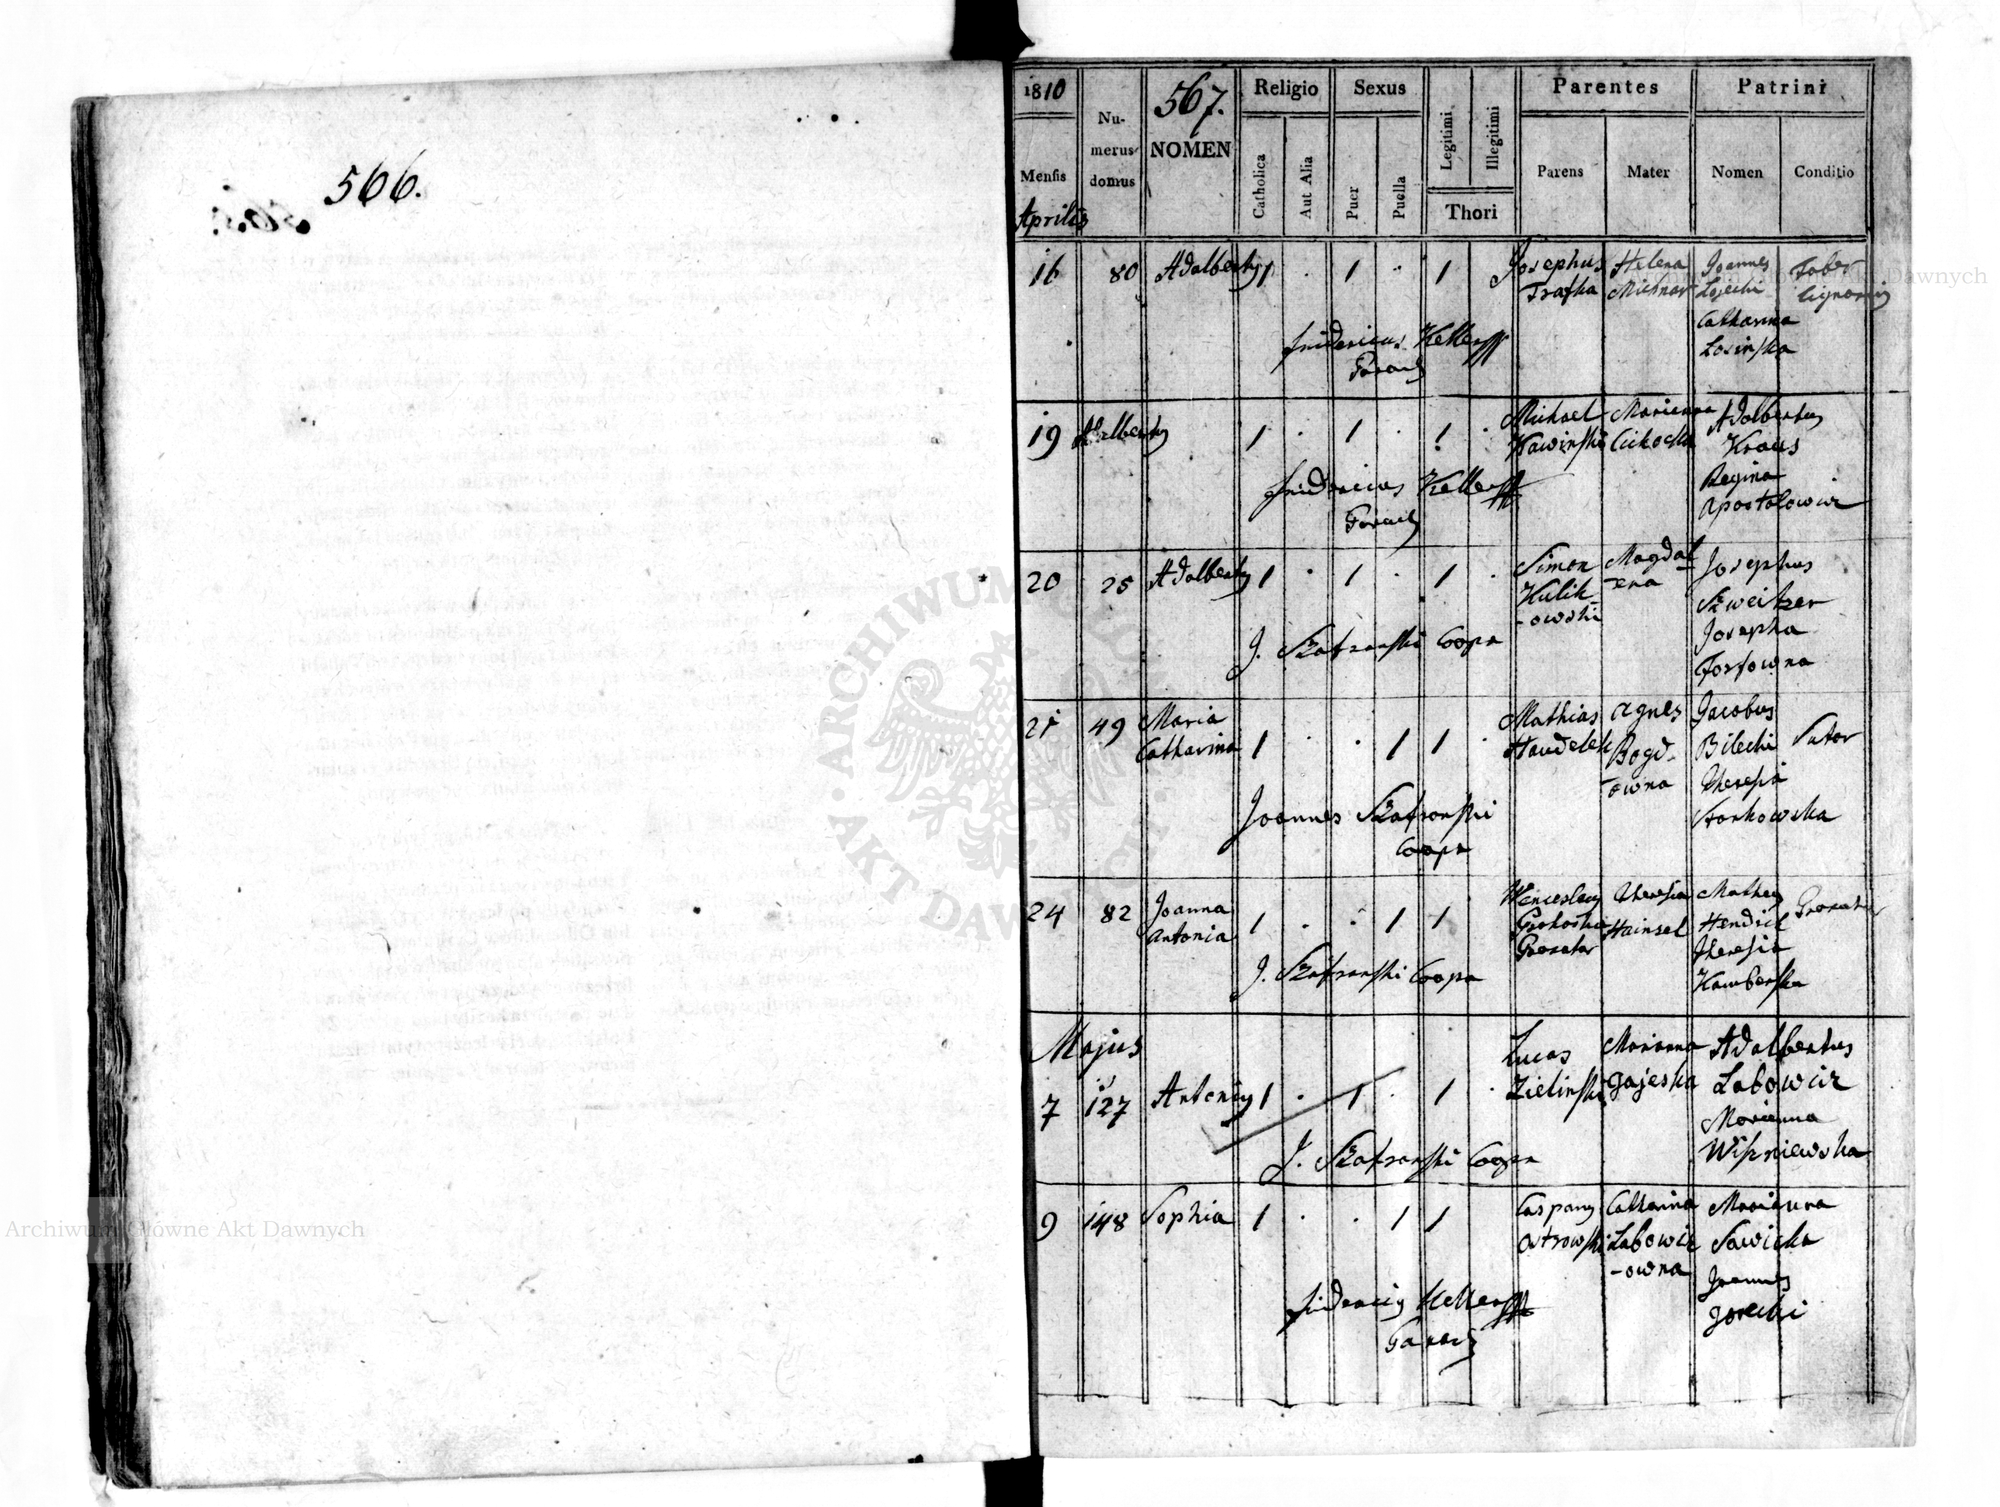 566.
1810
567.
Numerus domus
NOMEN
Religio
Sexus
Legitimi
Illegitimi
Thori
Parentes
Patrini
Mensis
Catholica
Aut Alia
Puer
Puella
Parens
Mater
Nomen
Conditio
Aprilis
16 80 Adalbertus 1 . 1 . 1 Josephus Helena Joannes Faber
Michnar Lojecki lignarius
Catharina
Losinska
Fridericus Keller
19 Adalbertus 1 . 1 . 1 . Michael Marianna Adalbertus
Kawinski Cichocka Kraus
Regina
Apostolowicz
Fridericus Keller
20 25 Adalbertus 1 . 1 . 1 . Simon Magdal
Kulik- ena Josephus
-owski Szweitzer
Josepha
J. Szafranski Coopr
21 49 Maria 1 . . 1 1 Mathias Agnes Jacobus
Catharina Haudelek Bogd- Bilecki Sutor
owna Theresia
Starkowska
Joannes Szafranski
Coopr
24 82 Joanna 1 . . 1 1 Wenceslaus Theresia Matheus
Antonia Hainsel Hendrich
Theresia
Kamberska
J. Szafranski Coopr
Majus
7 127 Antonius 1 . 1 . 1 . Lucas Marianna Adalbertus
Zielinski Gajeska Labowicz
Marianna
Wiszniewska
J. Szafranski Coopr
9 148 Sophia 1 . . 1 1 Casparus Catharina Marianna
Ostrowski Labowicz Sawicka
-owna Joannes
Gorecki
Fridericus Keller
ARCHIWUM GŁÓWNE AKT DAWNYCH
Archiwum Główne Akt Dawnych
Archiwum Główne Akt Dawnych